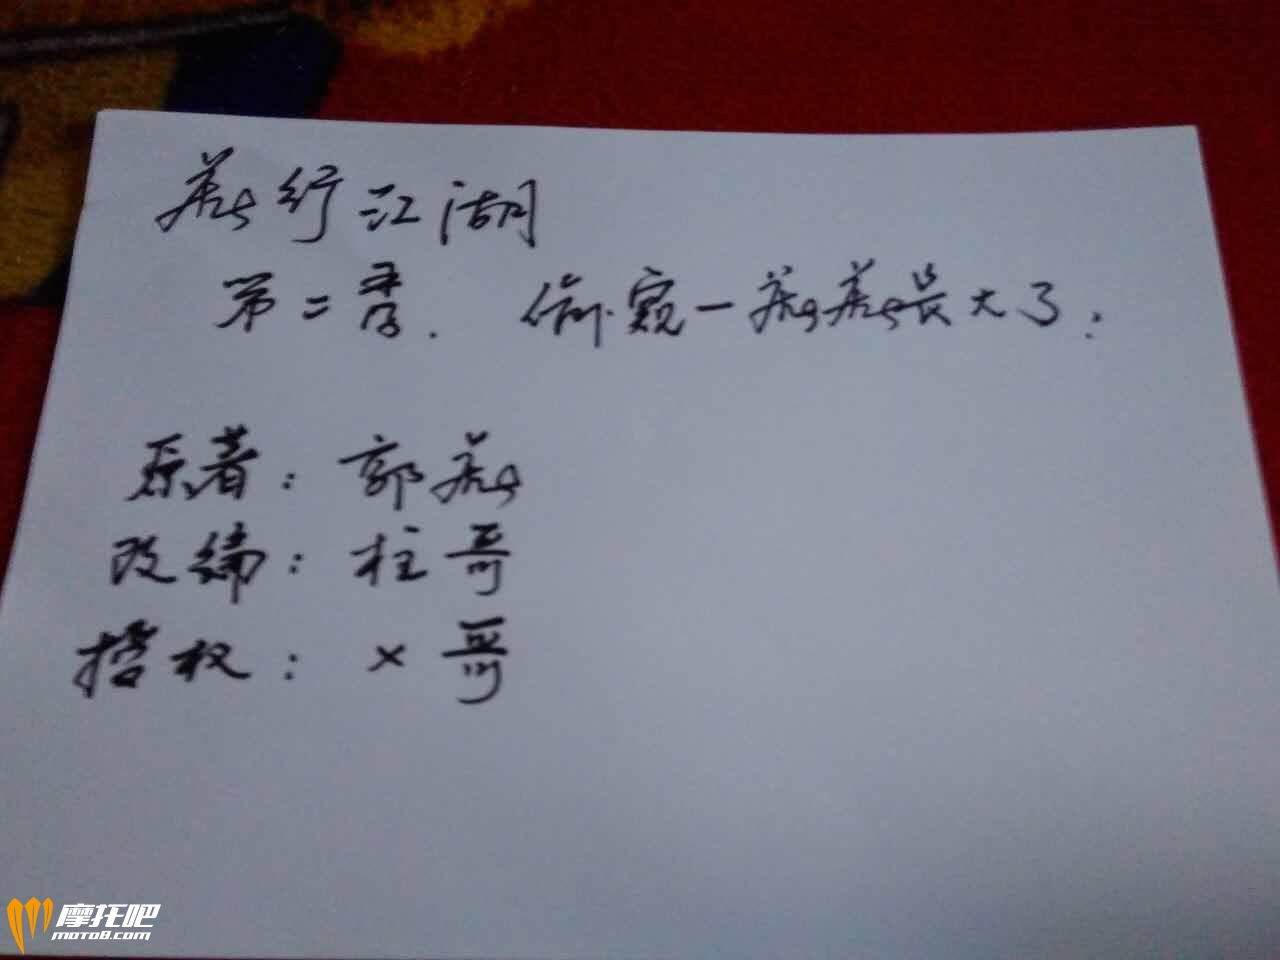 行江湖
第二 . 偷窥一 长大了:
原著: 郭
改编: 柱哥
授权: × 哥
摩托吧
moto8.com